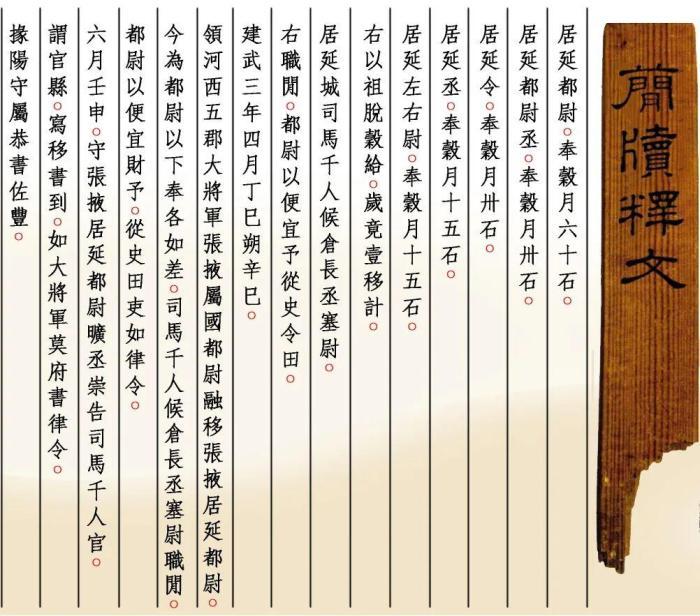 簡牘釋文
居延都尉。奉穀月六十石。
居延都尉丞。奉穀月卅石。
居延令。奉穀月卅石。
居延丞。奉穀月十五石。
居延左右尉。奉穀月十五石。
右以祖脫穀給。歲竟壹移計。
居延城司馬千人候倉長丞塞尉。
右職閒。都尉以便宜予從史令田。
建武三年四月丁巳朔辛巳。
領河西五郡大將軍張掖屬國都尉融移張掖居延都尉。
今為都尉以下奉各如差。司馬千人候倉長丞塞尉職閒。
都尉以便宜財予。從史田吏如律令。
六月壬申。守張掖居延都尉曠丞崇告司馬千人官。
謂官縣。寫移書到。如大將軍莫府書律令。
掾陽守屬恭書佐豐。